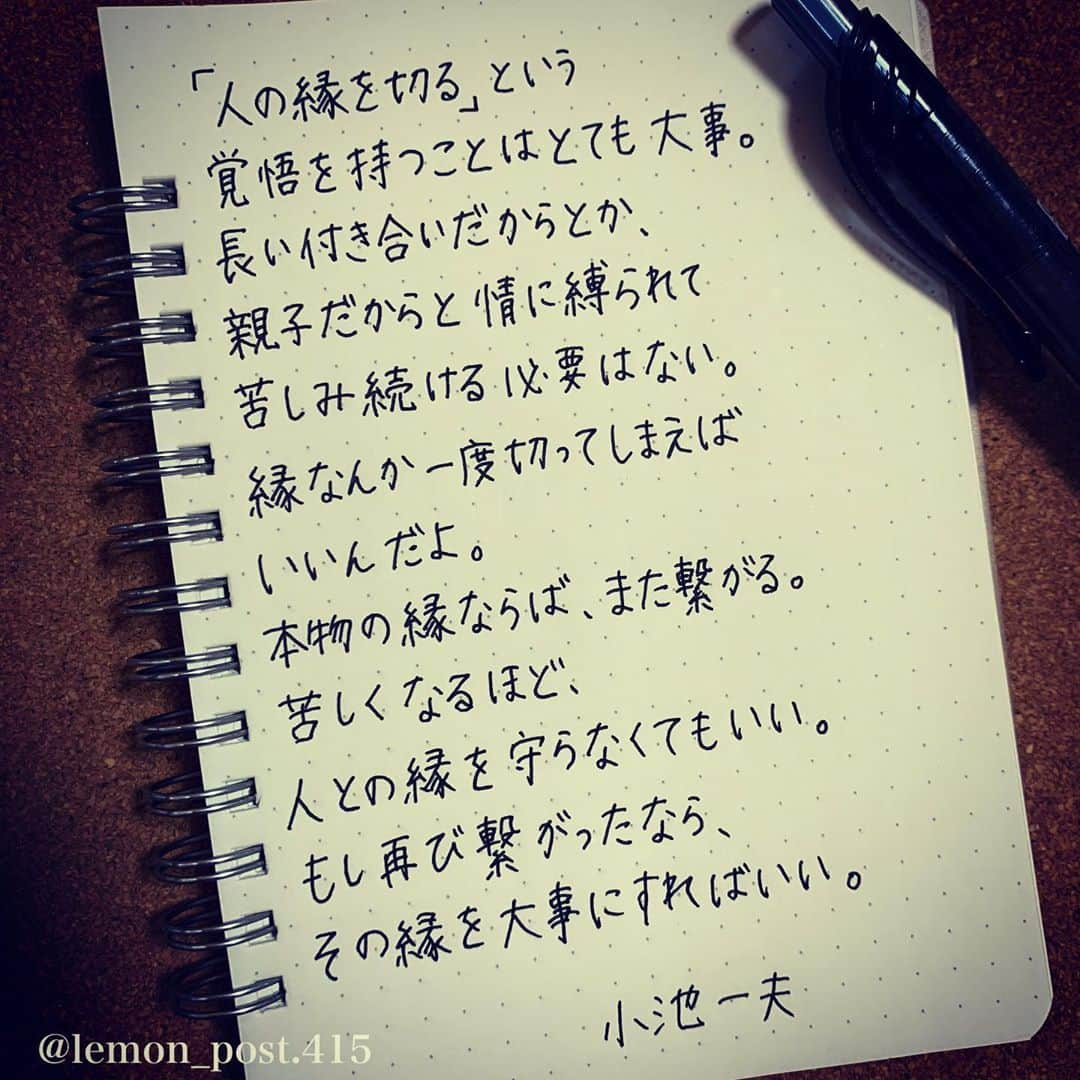 「人の縁を切る」という
覚悟を持つことはとても大事。
長い付き合いだからとか、
親子だからと情に縛られて
苦しみ続ける必要はない。
縁なんか一度切ってしまえば
いいんだよ。
本物の縁ならば、また繋がる。
苦しくなるほど、
人との縁を守らなくてもいい。
もし再び繋がったなら、
その縁を大事にすればいい。
小池一夫
@lemon_post.415